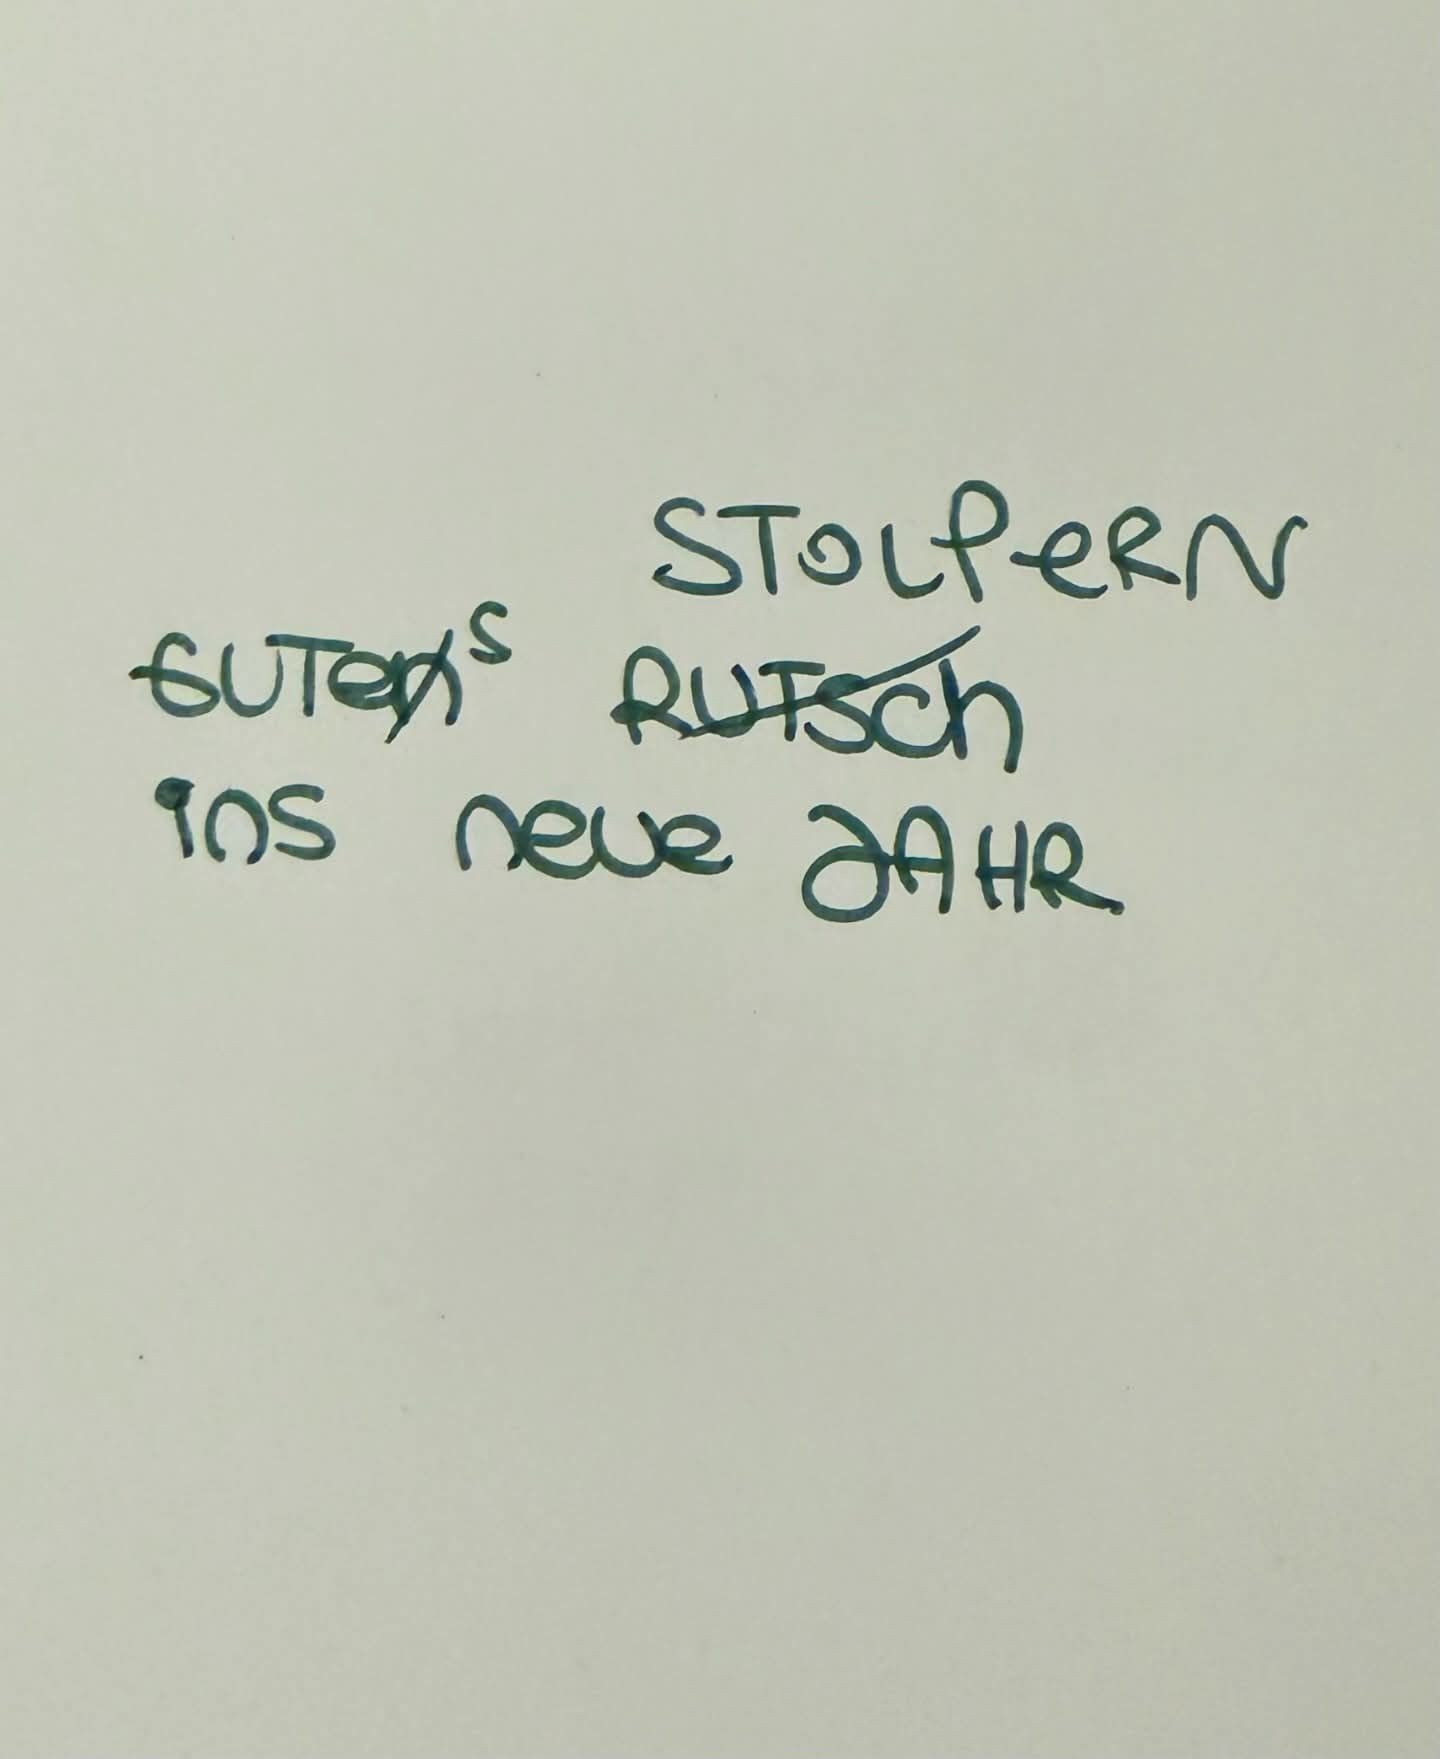 STOLPERN
GUTens RUTSch
ins neue JAHR